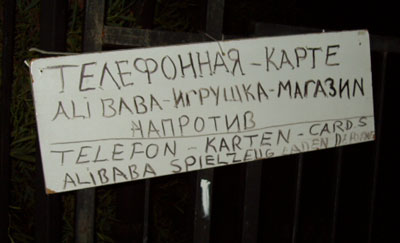 ТЕЛЕФОННАЯ - КАРТЕ
ALI BABA - ИГРУШКА - МАГАЗИН
НАПРОТИВ
TELEFON - KARTEN - CARDS
ALIBABA SPIELZEUG LADEN